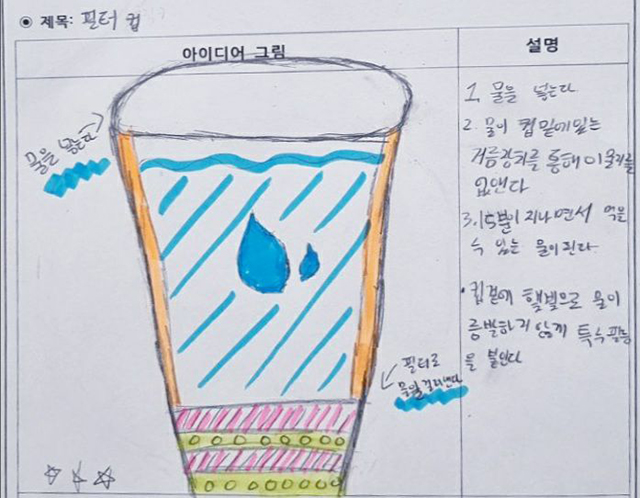 ◉ 제목: 필터 컵
아이디어 그림
설명
물을 넣는다
1. 물을 넣는다
2. 물이 컵 밑에 있는
거름장치를 통해 이물질을
없앤다
3. 15분이 지나면서 먹을
수 있는 물이 된다.
• 컵겉에 햇빛으로 물이
증발하지 않게 특수 필름
을 붙인다
필터로
물을 걸러낸다